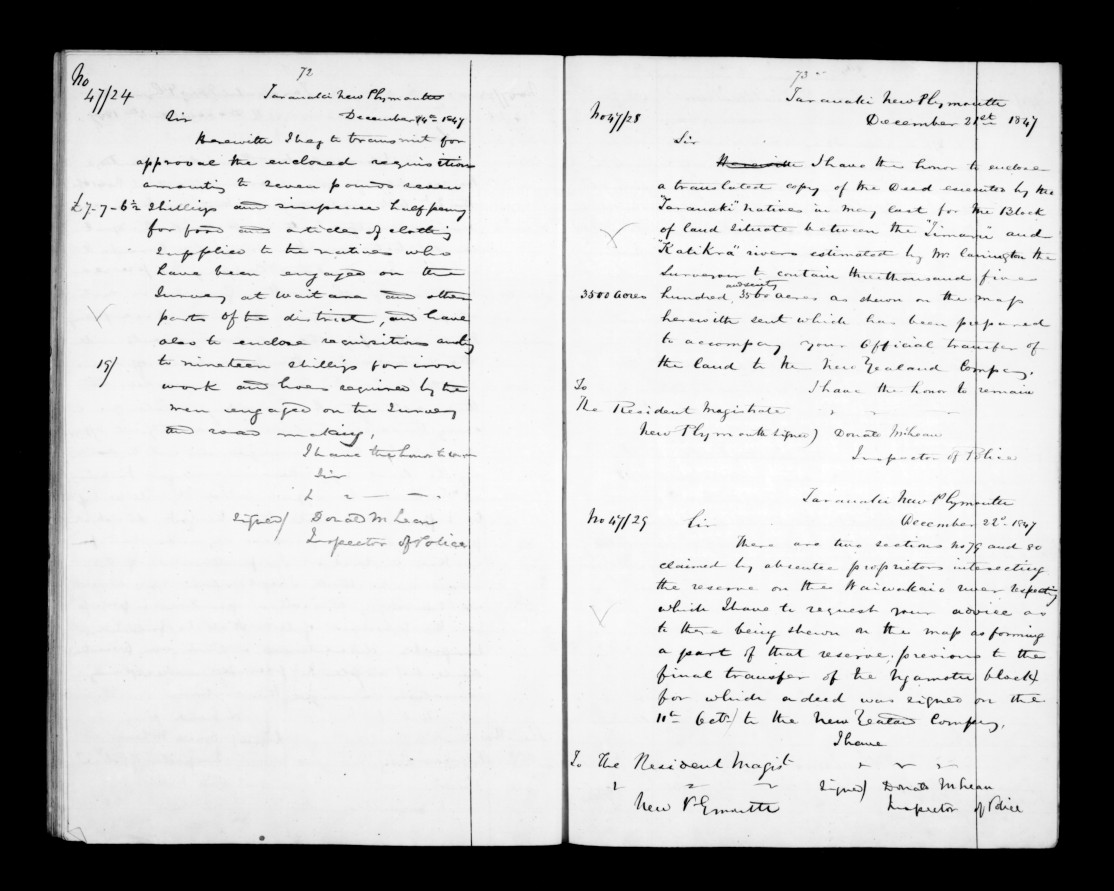 72
No
47/24
Taranaki New Plymouth
December 1847
Sir
Herewith I beg to transmit for
approval the enclosed requisitions
amounting to seven pounds seven
£7-7-6½ shillings and sixpence halfpenny
for food and articles of clothing
supplied to the natives who
have been engaged on the
Survey at Waitara and other
parts of the district, and have
also to enclose requisitions amtg
19/ to nineteen shillings for iron
work and hoes required by the
men engaged on the Survey
and road making,
I have the honor to
Sir
signed) Donald McLean
Inspector of Police
73
Taranaki New Plymouth
No 47/28 December 21st 1847
Sir
Herewith I have the honor to enclose
a translated copy of the Deed executed by the
"Taranaki" Natives in May last for the Block
of land situate between the "Timaru" and
"Katikra" rivers estimated by Mr Carrington the
Surveyor to contain three thousand five
and sixty
3500 acres hundred, 3560 acres as shewn on the map
herewith sent which has been prepared
to accompany your Official transfer of
the land to the New Zealand Company.
I have the honor to remain
To
The Resident Magistrate
New Plymouth signed) Donald McLean
Inspector of Police
Taranaki New Plymouth
No 47/29 December 22d 1847
Sir
There are two sections No 79 and 80
claimed by absentee proprietors intersecting
the reserve on the Waiwakaio river respecting
which I have to request your advice as
to there being shewn on the map as forming
a part of that reserve, previous to the
final transfer of the Ngamotu block
for which a deed was signed on the
11th Octr) to the New Zealand Company,
I have
To The Resident Magist
signed) Donald McLean
New Plymouth Inspector of Police